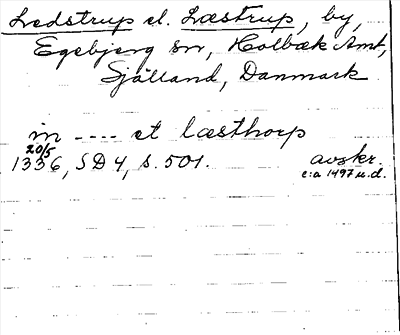 Ledstrup el. Læstrup, by,
Egebjerg sn, Holbæk Amt,
Själland, Danmark
in ---- et læsthorp
20/5
1336, SD 4, s. 501. avskr.
c:a 1497 u.d.